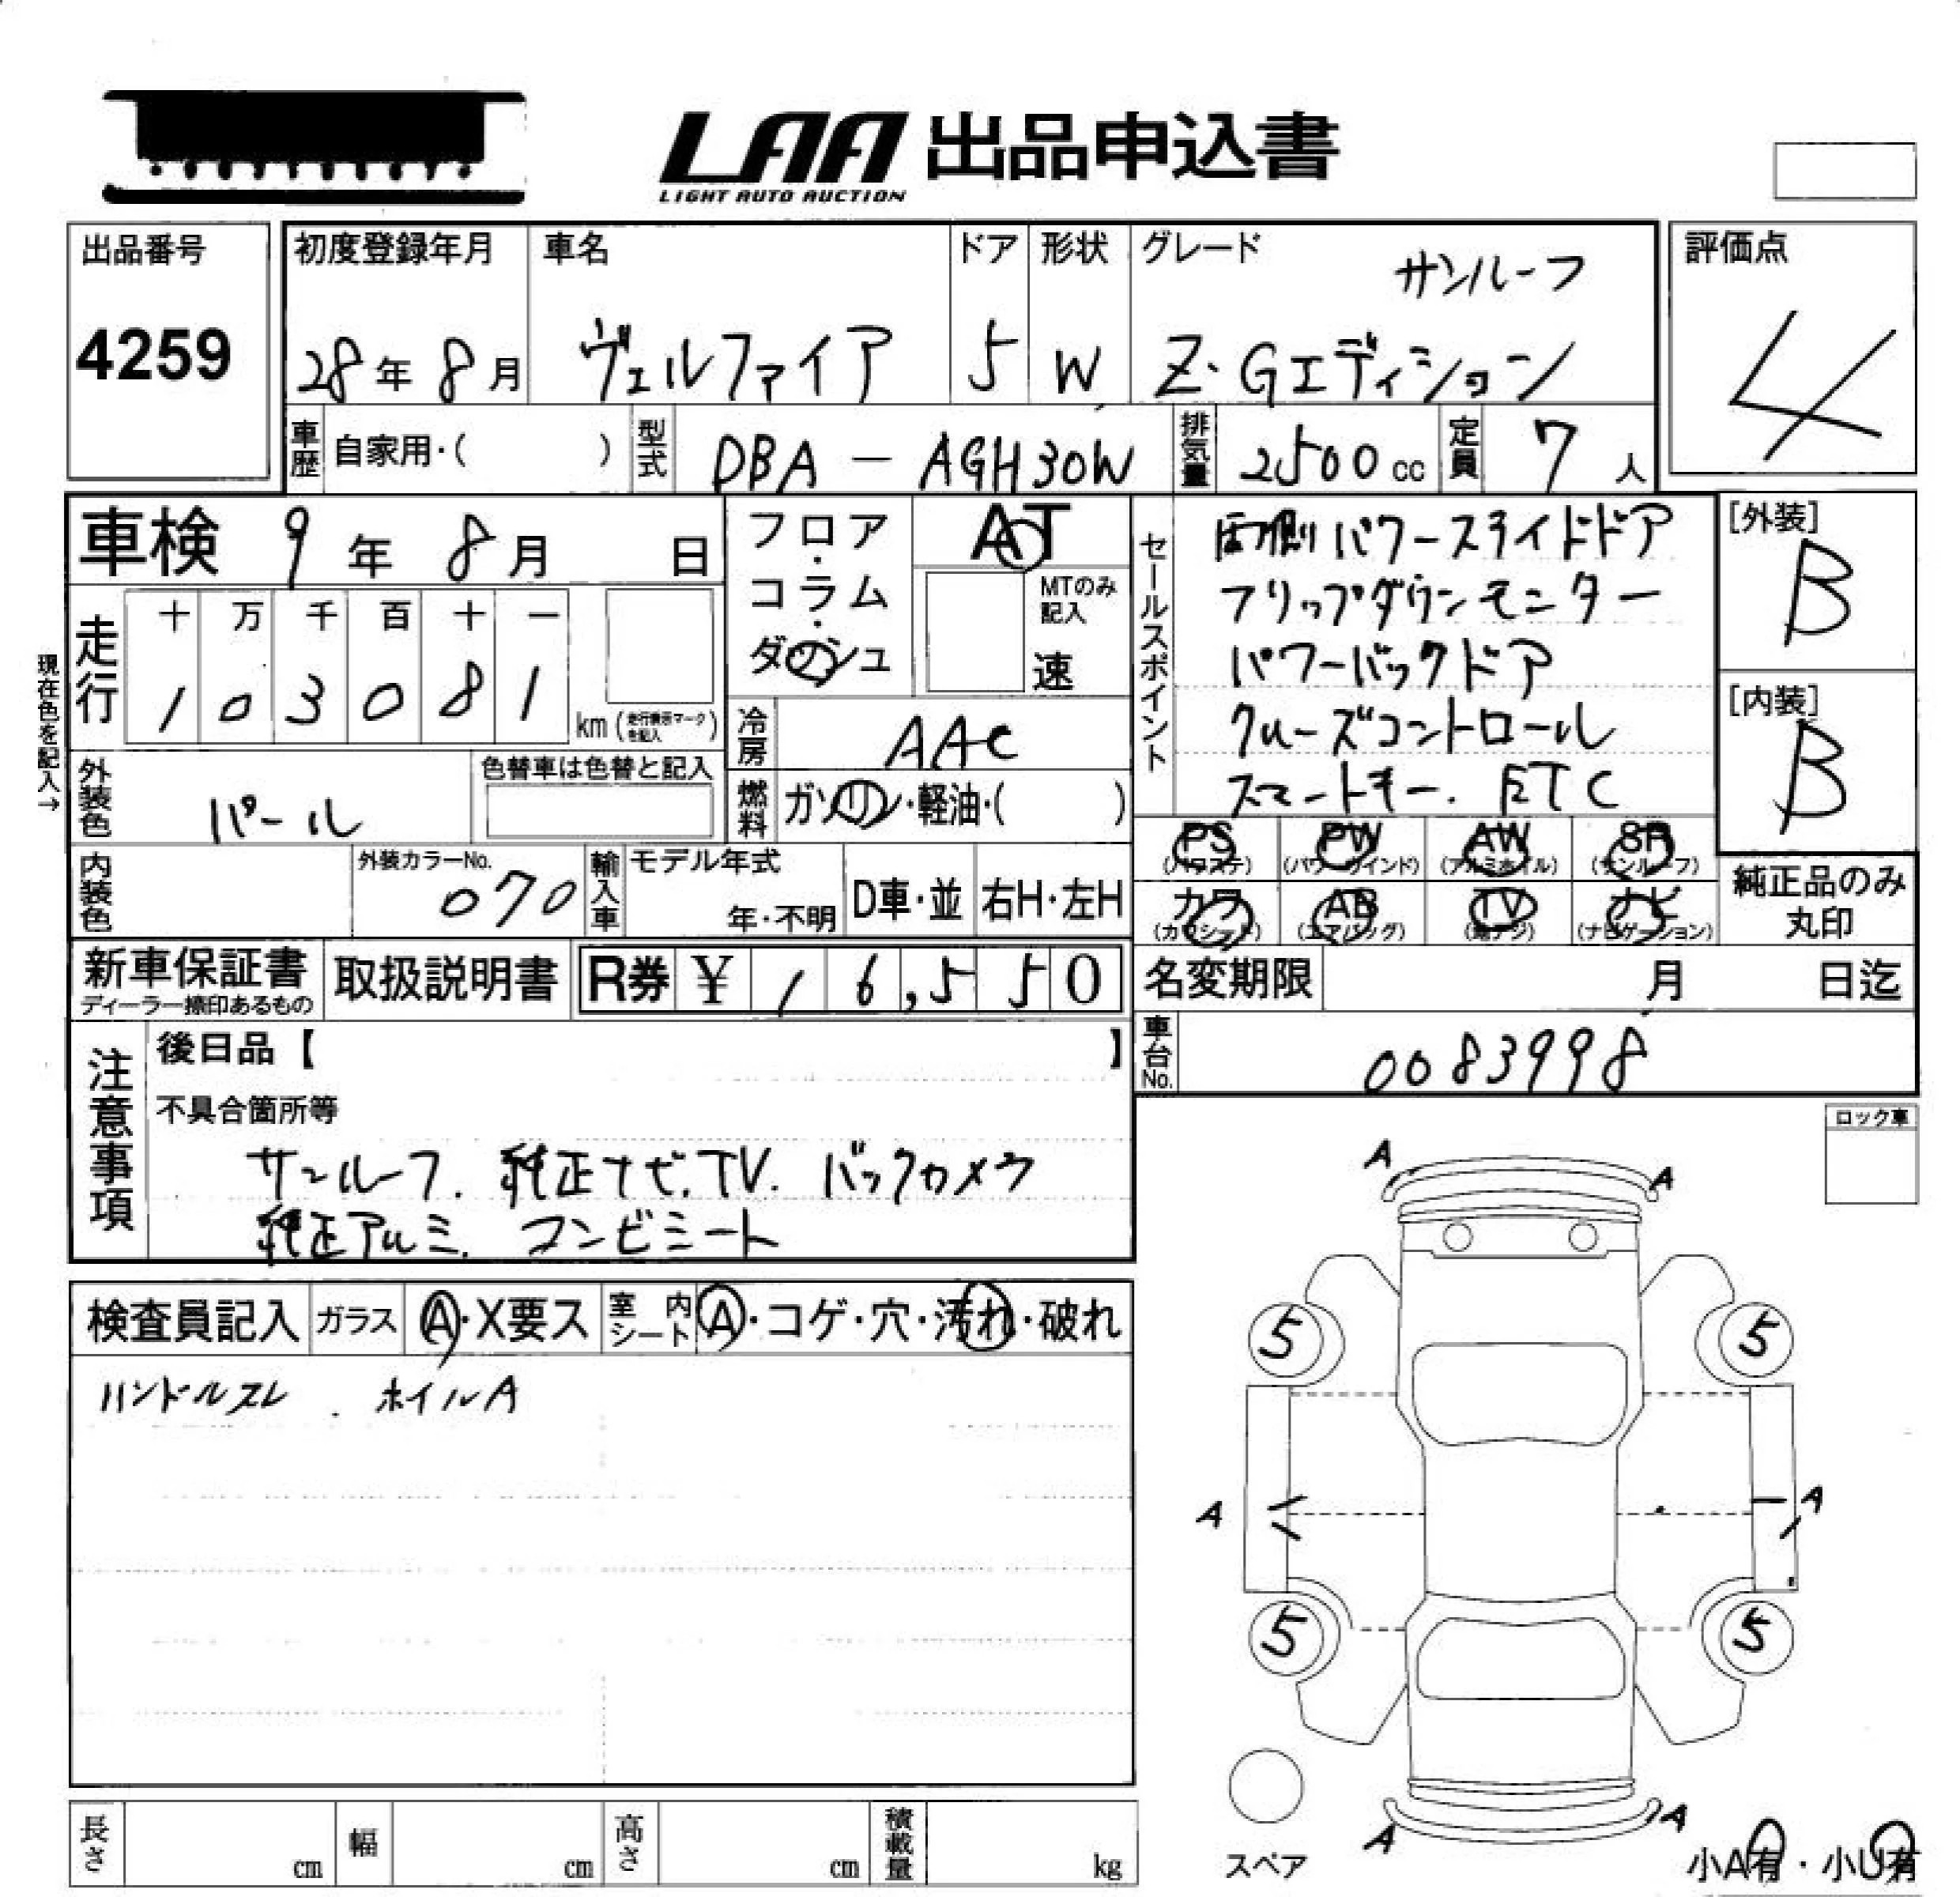 LAA 出品申込書
LIGHT AUTO AUCTION
出品番号
4259
初度登録年月
28年 8月
車名
ヴェルファイア
ドア
5
形状
W
グレード
サンルーフ
Z・Gエディション
評価点
4
車歴
自家用・( )
型式
DBA - AGH30W
排気量
2500 cc
定員
7 人
車検 9年 8月 日
フロア・コラム・ダッシュ
AT
MTのみ記入
速
セールスポイント
両側パワースライドドア
フリップダウンモニター
パワーバックドア
クルーズコントロール
スマートキー. ETC
[外装]
B
[内装]
B
現在色を記入→
走行
十 万 千 百 十 一
1 0 3 0 8 1
km (走行表示マークを記入)
冷房
AAC
外装色
パール
色替車は色替と記入
燃料
ガソリン・軽油・( )
PS
(パワステ)
PW
(パワーウインド)
AW
(アルミホイル)
SR
(サンルーフ)
内装色
外装カラーNo.
070
輸入車
モデル年式
年・不明
D車・並
右H・左H
カワ
(カワシート)
AB
(エアバッグ)
TV
(地デジ)
ナビ
(ナビゲーション)
純正品のみ
丸印
新車保証書
ディーラー捺印あるもの
取扱説明書
R券 ¥ 16,550
名変期限 月 日迄
車台No.
0083998
注意事項
後日品【 】
不具合箇所等
サンルーフ. 純正ナビ.TV. バックカメラ
純正アルミ. コンビシート
ロック車
検査員記入
ガラス
A・X要ス
室内シート
A・コゲ・穴・汚れ・破れ
ハンドルスレ . ホイルA
A A
5 5
A A
5 5
A A
スペア
小A有・小U有
長さ cm
幅 cm
高さ cm
積載量 kg